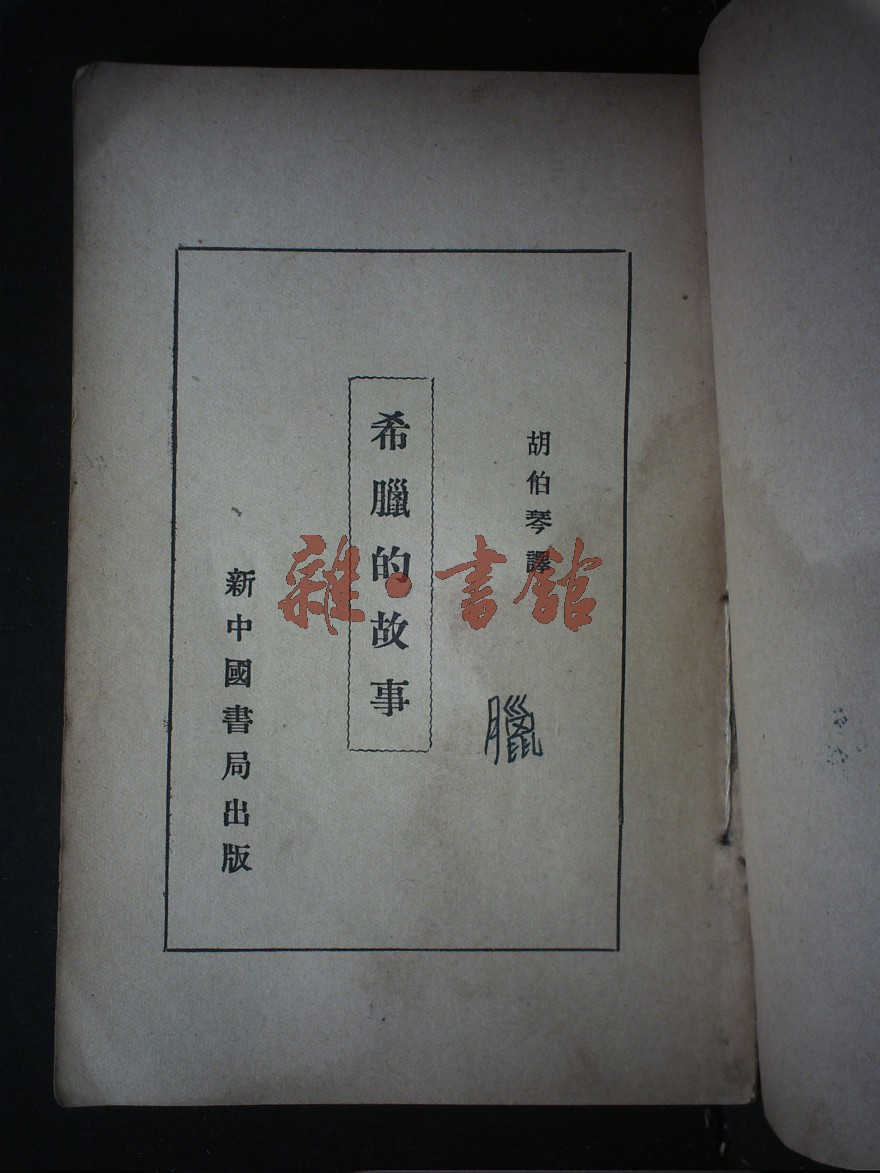 胡伯琴譯
希臘的故事
新中國書局出版
臘
雜·書館